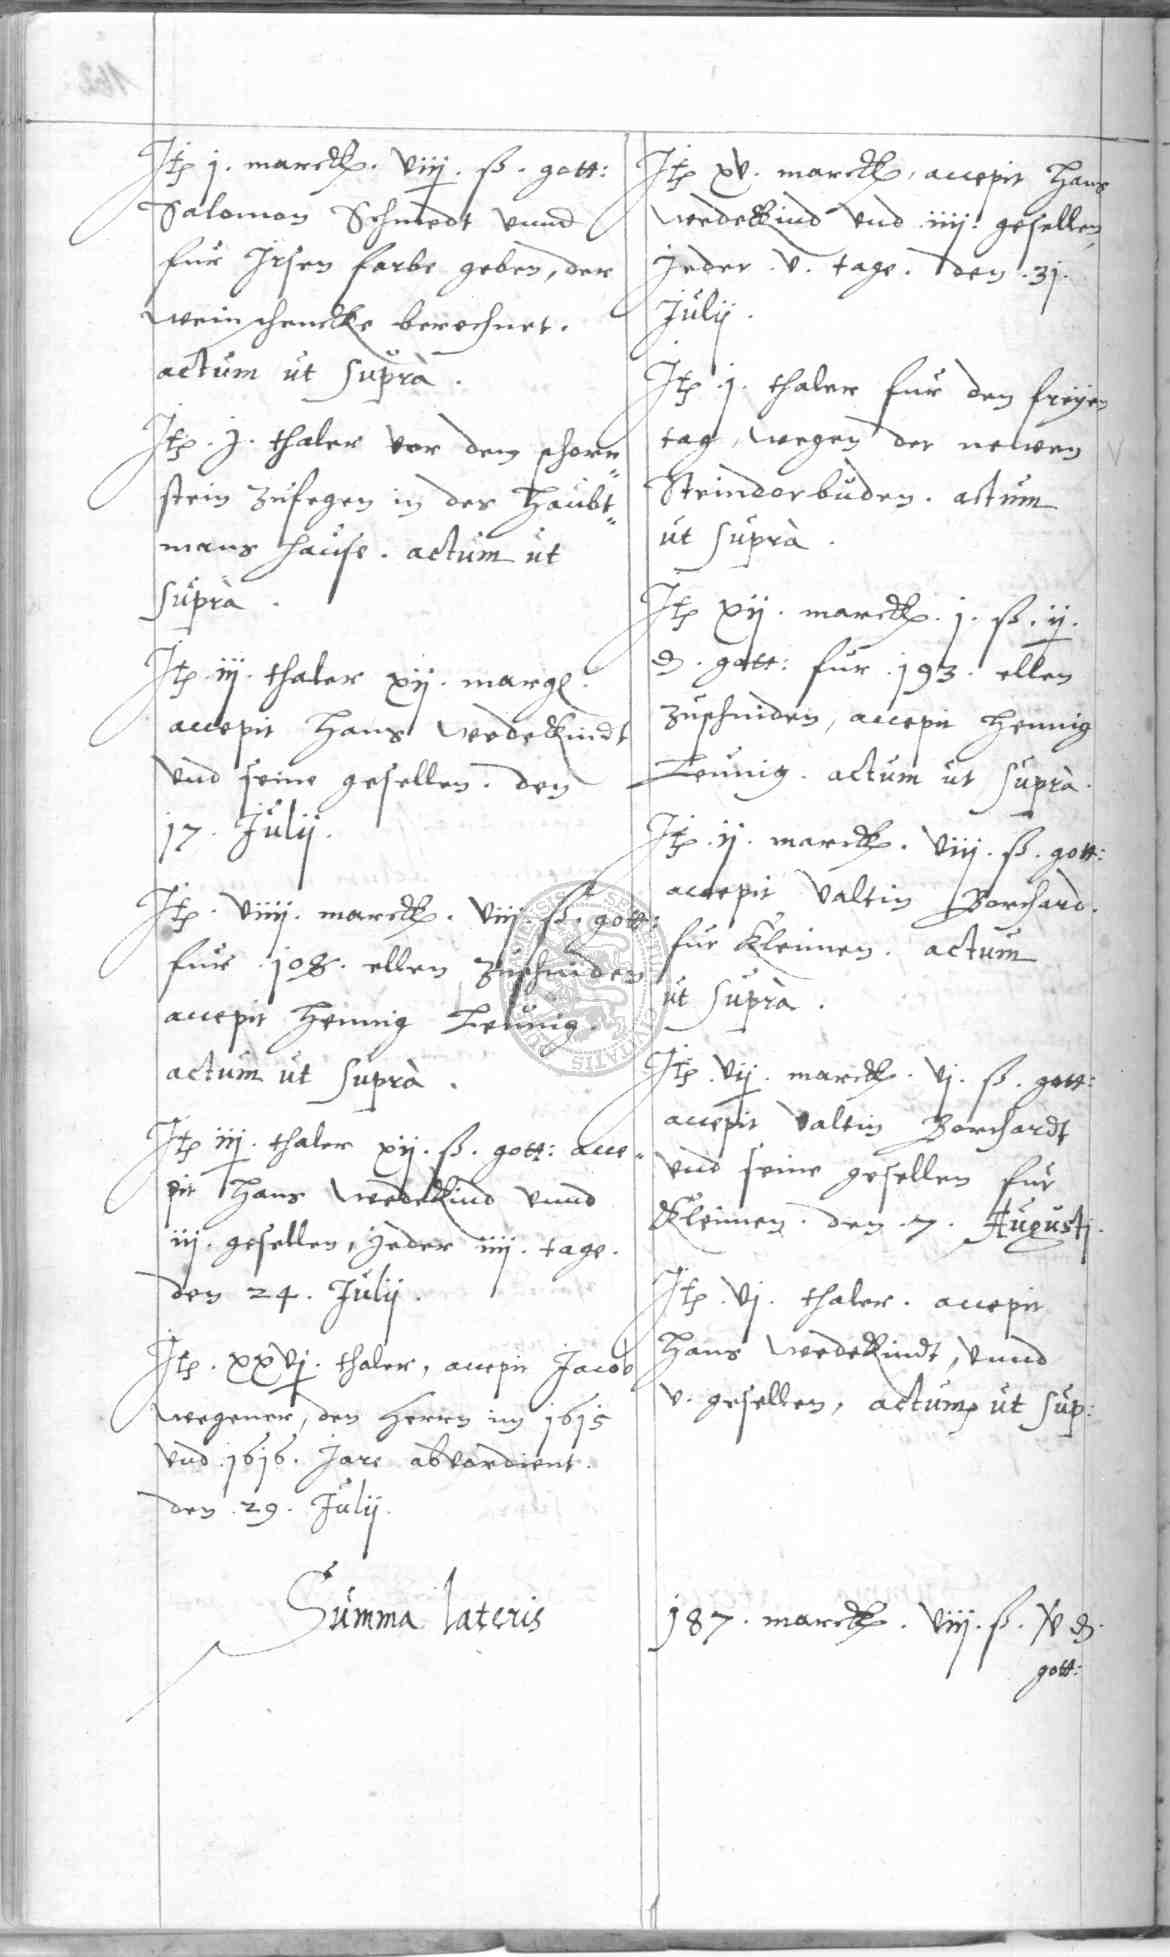 Itp j. marck. viij. ß. gott:
Salomon Schmedt vnnd
für Irsen farbe geben, der
weinschencke berechnet.
actum ut suprà.
Itp. j. thaler vor den schorn
stein zufegen in der Haubt
mans hause. actum ut
suprà.
Itp. iij. thaler xij. margl.
accepit Hans Wedekindt
vnd seine gesellen. den
17. Julij.
Itp. viiij. marck. viij. ß. gott:
für 108. ellen zuschniden
accepit Hennig Leunig.
actum ut suprà.
Itp iij. thaler xij. ß. gott: acce
pit Hans Wedekind vnnd
iij. gesellen, Jeder iiij. tage.
den 24. Julij.
Itp. xxvj. thaler, accepit Jacob
Wegener, den Herrn im 1615
vnd 1616. Jare abverdient.
den 29. Julij.
Itp xv. marck, accepit Hans
Wedekind vnd iiij. gesellen,
Jeder v. tage. den 31.
Julij.
Itp. j. thaler für den freyen
tag, wegen der newen
Steindorbuden. actum
ut suprà.
Itp xij. marck. j. ß. ij.
₰. gott: für 193. ellen
zuschniden, accepit Hennig
Leunig. actum ut suprà.
Itp. ij. marck. viij. ß. gott:
accepit Valtin Borchard.
für Kleimen. actum
ut suprà.
Itp. vij. marck. vj. ß. gott:
accepit Valtin Borchardt
vnd seine gesellen für
Kleimen. den 7. Augustj.
Itp. vj. thaler. accepit
Hans Wedekindt, vnnd
v. gesellen, actum ut sup:
Summa lateris 187. marck. viij. ß. v ₰.
gott: